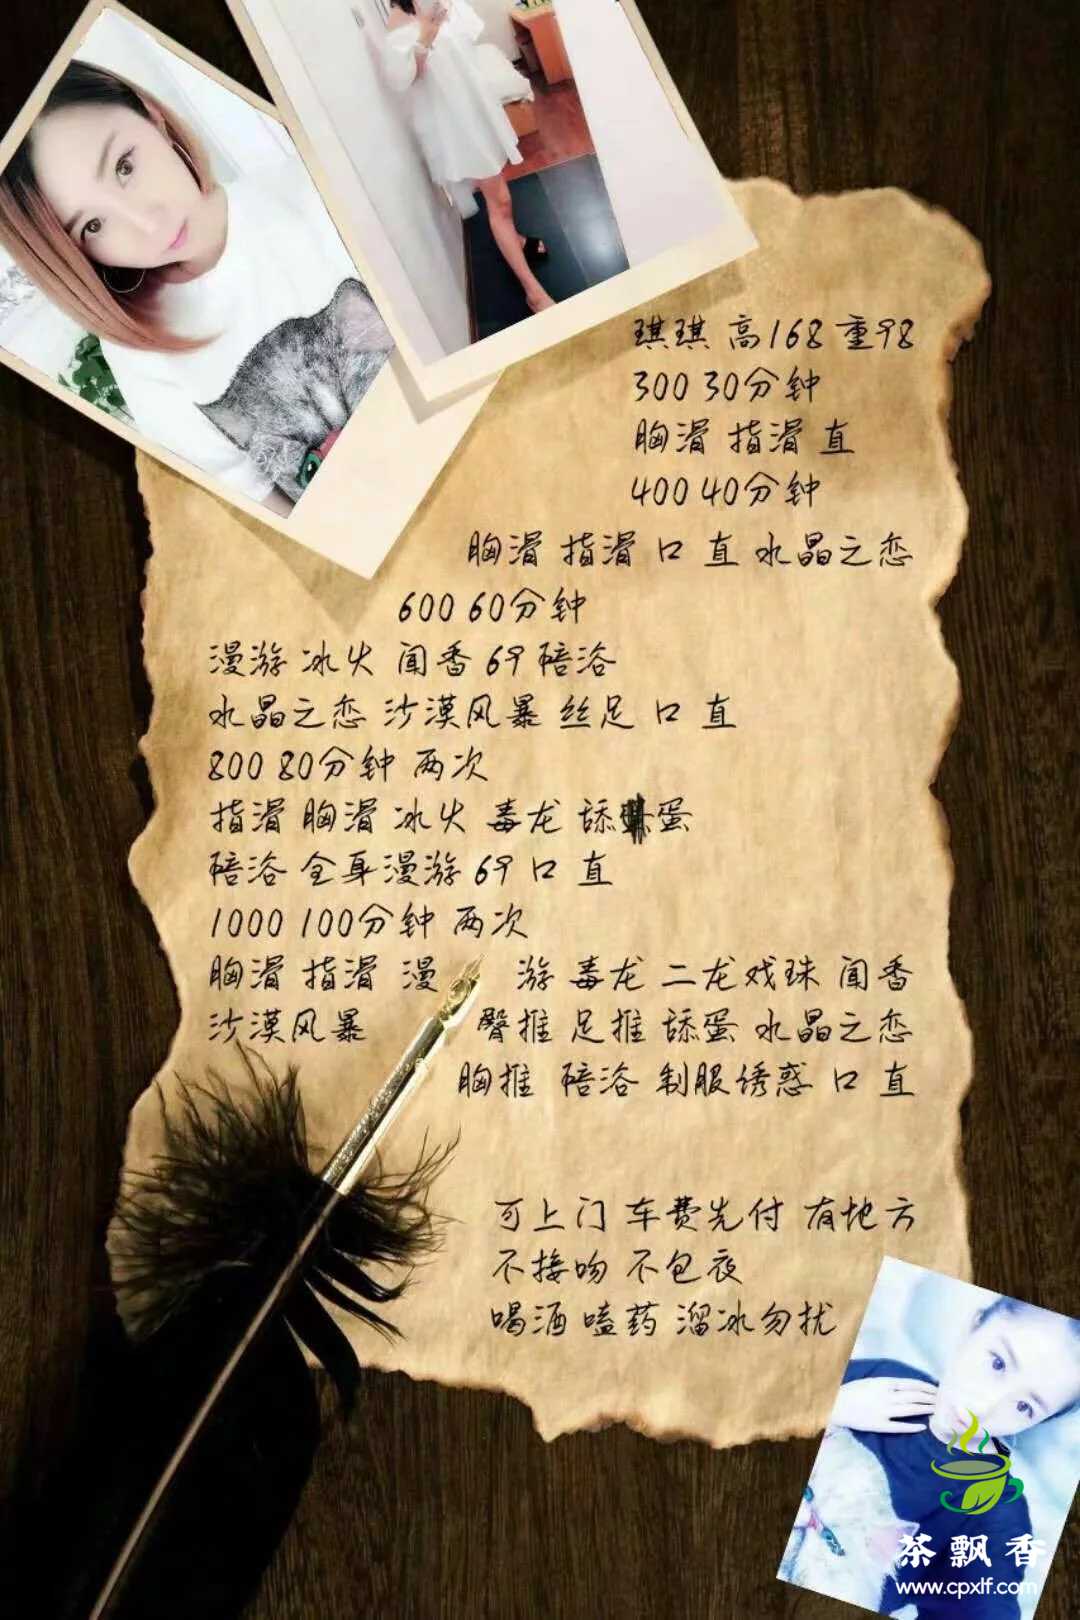 琪琪 高168 重98
300 30分钟
胸滑 指滑 直
400 40分钟
胸滑 指滑 口 直 水晶之恋
600 60分钟
漫游 冰火 闻香 69 陪浴
水晶之恋 沙漠风暴 丝足 口 直
800 80分钟 两次
指滑 胸滑 冰火 毒龙 舔 蛋
陪浴 全身漫游 69 口 直
1000 100分钟 两次
胸滑 指滑 漫 游 毒龙 二龙戏珠 闻香
沙漠风暴 臀推 足推 舔蛋 水晶之恋
胸推 陪浴 制服诱惑 口 直
可上门 车费先付 有地方
不接吻 不包夜
喝酒 嗑药 溜冰勿扰
茶飘香
www.cpxlf.com